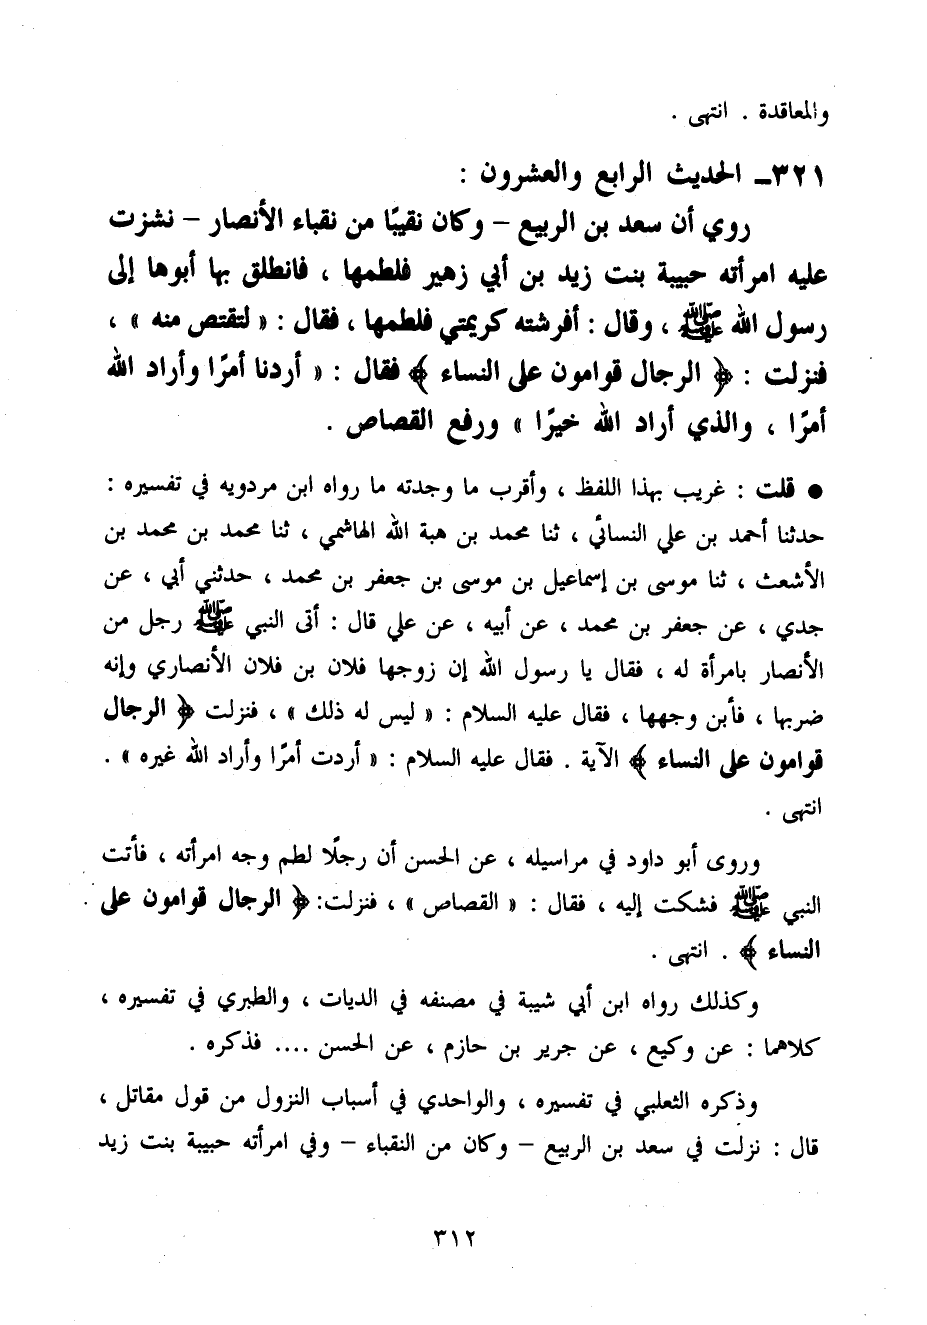 والمعاقدة . انتهى .
٣٢١ـ الحديث الرابع والعشرون :
روي أن سعد بن الربيع – وكان نقيبًا من نقباء الأنصار – نشزت
عليه امرأته حبيبة بنت زيد بن أبي زهير فلطمها ، فانطلق بها أبوها إلى
رسول الله ﷺ ، وقال : أفرشته كريمتي فلطمها ، فقال : « لتقتص منه » ،
فنزلت : ﴿ الرجال قوامون على النساء ﴾ فقال : « أردنا أمرًا وأراد الله
أمرًا ، والذي أراد الله خيرًا » ورفع القصاص .
● قلت : غريب بهذا اللفظ ، وأقرب ما وجدته ما رواه ابن مردويه في تفسيره :
حدثنا أحمد بن علي النسائي ، ثنا محمد بن هبة الله الهاشمي ، ثنا محمد بن محمد بن
الأشعث ، ثنا موسى بن إسماعيل بن موسى بن جعفر بن محمد ، حدثني أبي ، عن
جدي ، عن جعفر بن محمد ، عن أبيه ، عن علي قال : أتى النبي ﷺ رجل من
الأنصار بامرأة له ، فقال يا رسول الله إن زوجها فلان بن فلان الأنصاري وإنه
ضربها ، فأبن وجهها ، فقال عليه السلام : « ليس له ذلك » ، فنزلت ﴿ الرجال
قوامون على النساء ﴾ الآية . فقال عليه السلام : « أردت أمرًا وأراد الله غيره » .
انتهى .
وروى أبو داود في مراسيله ، عن الحسن أن رجلًا لطم وجه امرأته ، فأتت
النبي ﷺ فشكت إليه ، فقال : « القصاص » ، فنزلت: ﴿ الرجال قوامون على
النساء ﴾ . انتهى .
وكذلك رواه ابن أبي شيبة في مصنفه في الديات ، والطبري في تفسيره ،
كلاهما : عن وكيع ، عن جرير بن حازم ، عن الحسن .... فذكره .
وذكره الثعلبي في تفسيره ، والواحدي في أسباب النزول من قول مقاتل ،
قال : نزلت في سعد بن الربيع – وكان من النقباء – وفي امرأته حبيبة بنت زيد
٣١٢